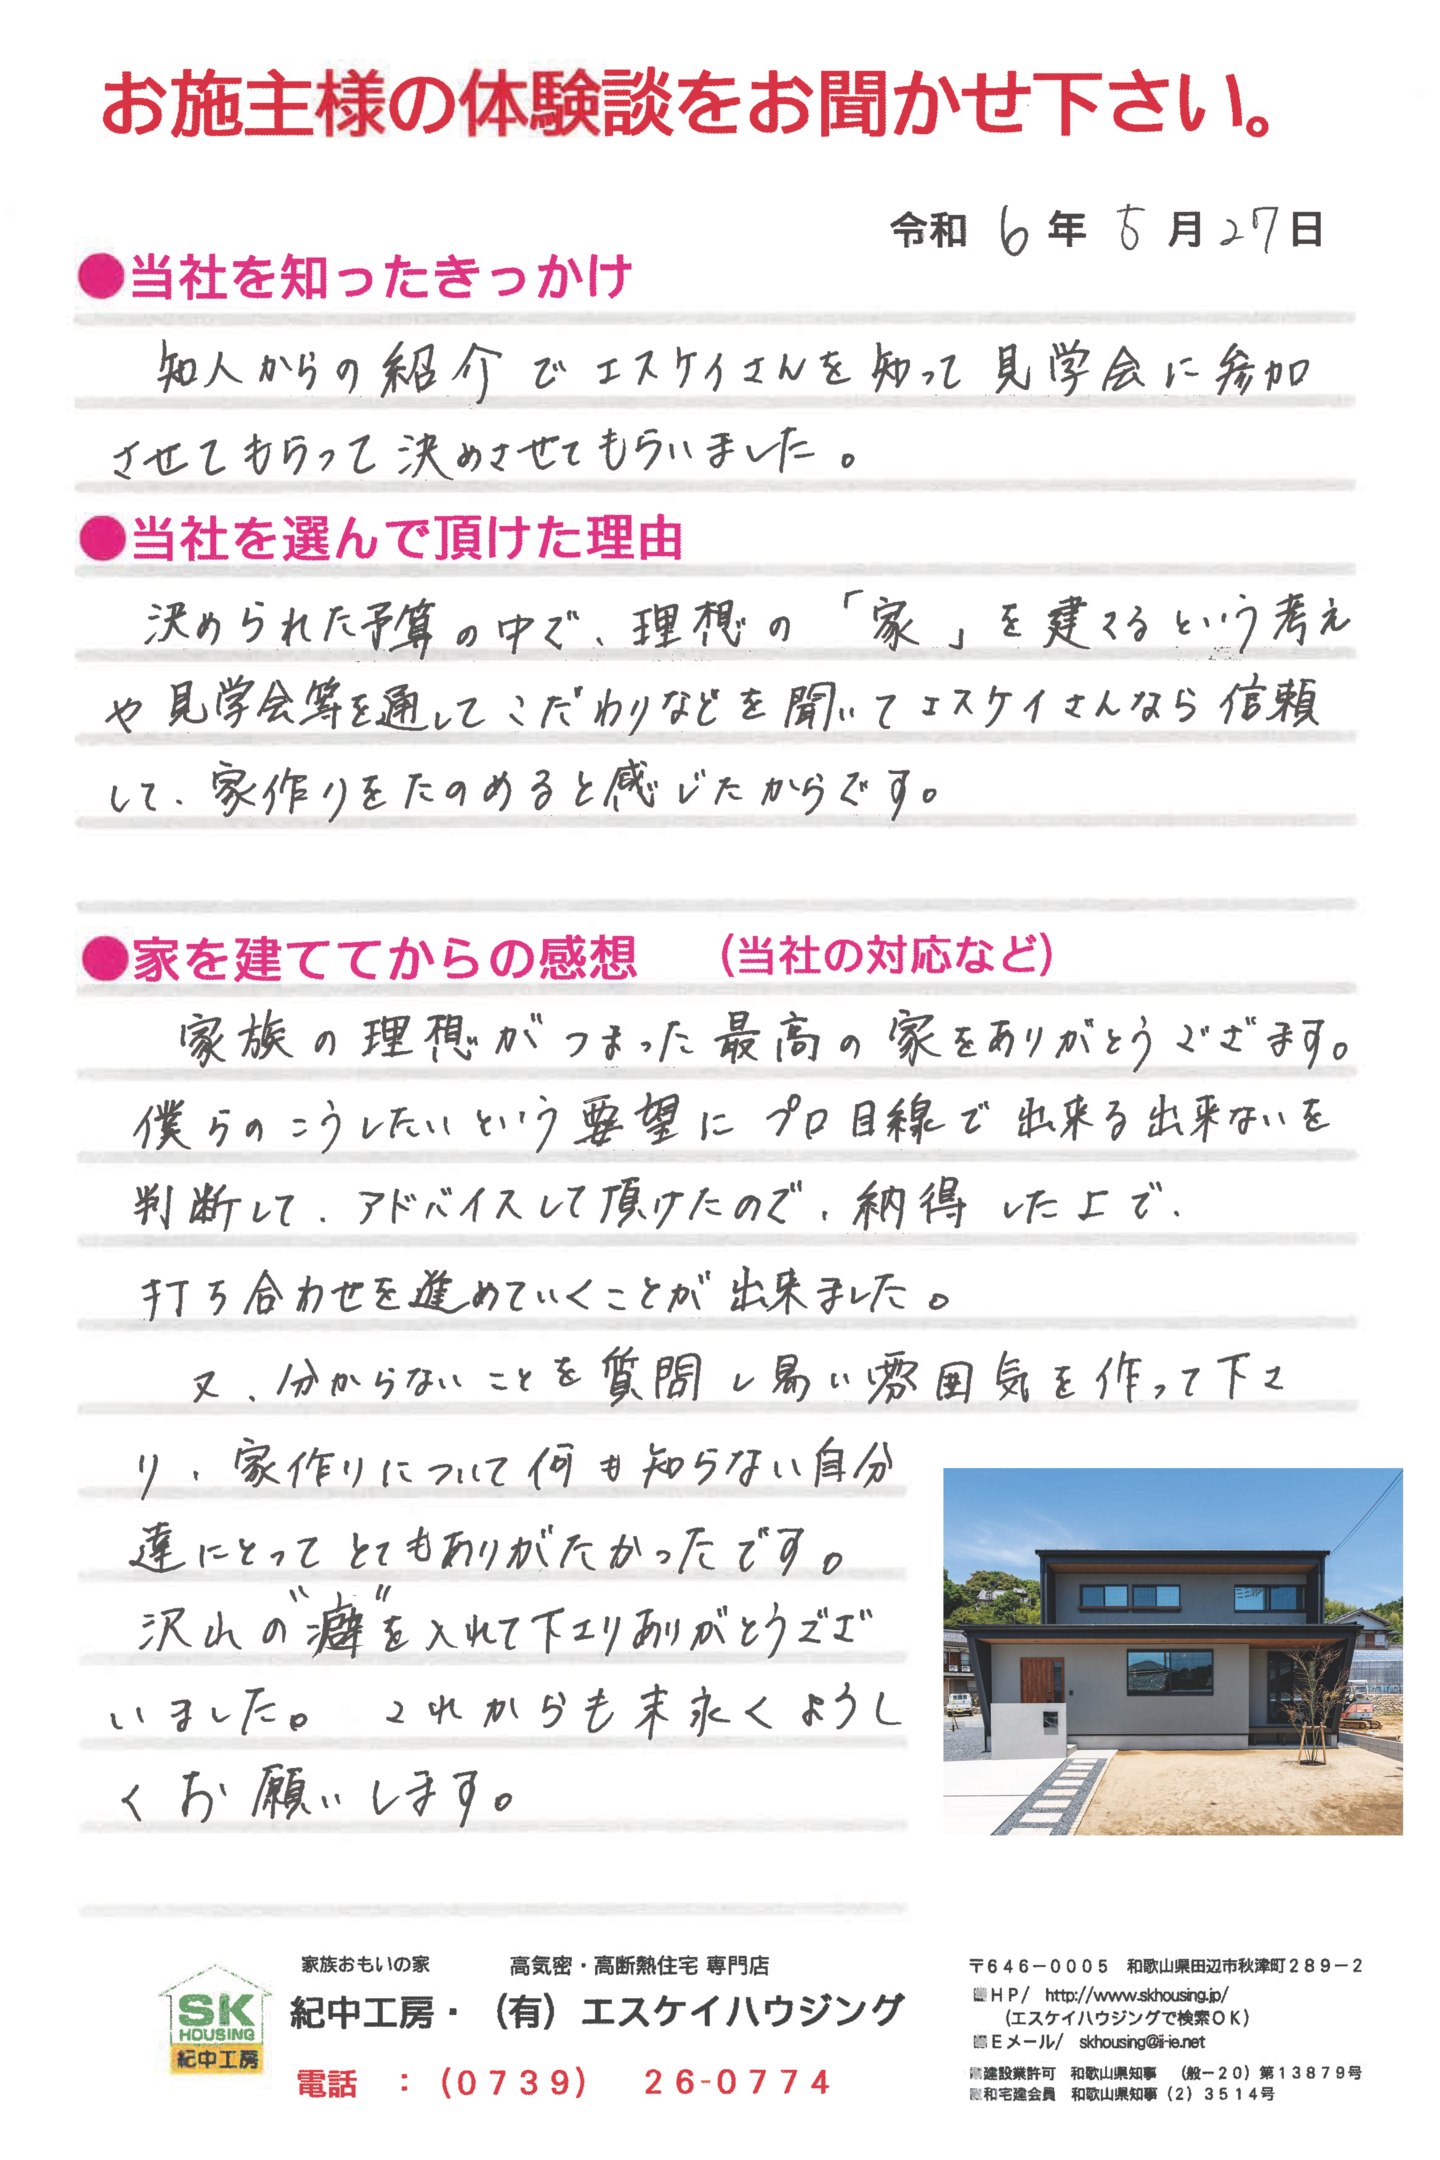 お施主様の体験談をお聞かせ下さい。
令和 6 年 5 月 27 日
●当社を知ったきっかけ
知人からの紹介でエスケイさんを知って見学会に参加
させてもらって決めさせてもらいました。
●当社を選んで頂けた理由
決められた予算の中で、理想の「家」を建てるという考え
や見学会等を通してこだわりなどを聞いてエスケイさんなら信頼
して、家作りをたのめると感じたからです。
●家を建ててからの感想 (当社の対応など)
家族の理想がつまった最高の家をありがとうござます。
僕らのこうしたいという要望にプロ目線で出来る出来ないを
判断して、アドバイスして頂けたので、納得した上で、
打ち合わせを進めていくことが出来ました。
又、分からないことを質問し易い雰囲気を作って下さ
り、家作りについて何も知らない自分
達にとってとてもありがたかったです。
沢山の"癖"を入れて下さりありがとうござ
いました。 これからも末永くようし
くお願いします。
SK
HOUSING
紀中工房
家族おもいの家 高気密・高断熱住宅 専門店
紀中工房・(有)エスケイハウジング
電話 : (0739) 26-0774
〒646-0005 和歌山県田辺市秋津町289-2
HP/ http://www.skhousing.jp/
(エスケイハウジングで検索OK)
Eメール/ skhousing@ii-ie.net
建設業許可 和歌山県知事 (般-20)第13879号
和宅建会員 和歌山県知事(2)3514号